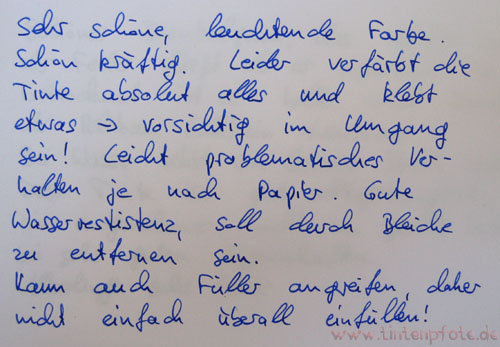 Sehr schöne, leuchtende Farbe.
Schön kräftig. Leider verfärbt die
Tinte absolut alles und klebt
etwas → vorsichtig im Umgang
sein! Leicht problematisches Ver-
halten je nach Papier. Gute
Wasserrestistenz, soll durch Bleiche
zu entfernen sein.
Kann auch Füller angreifen, daher
nicht einfach überall einfüllen!
www.tintenpfote.de